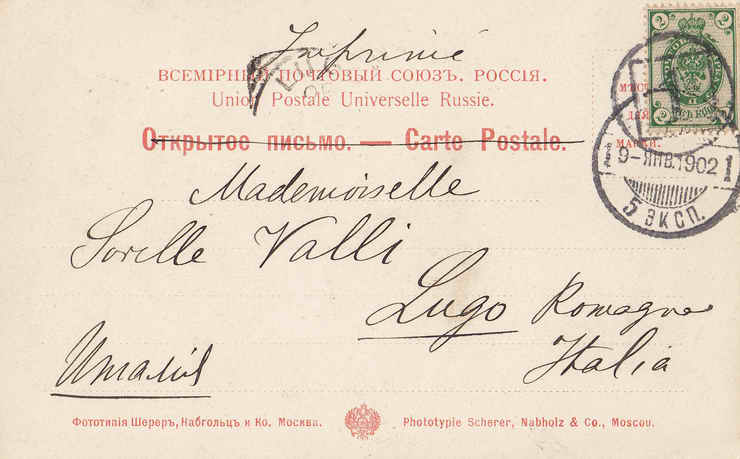 Imprimé
ВСЕМІРНЫЙ ПОЧТОВЫЙ СОЮЗЪ. РОССІЯ.
Union Postale Universelle Russie.
Открытое письмо. — Carte Postale.
2 2
2
МѢСТО
ДЛЯ
МАРКИ.
9-ЯНВ.1902
1
5 ЭКСП.
Mademoiselle
Sorelle Valli
Lugo Romagna
Italia
Италія
Фототипія Шереръ, Набгольцъ и Ко. Москва.
Phototypie Scherer, Nabholz & Co., Moscou.